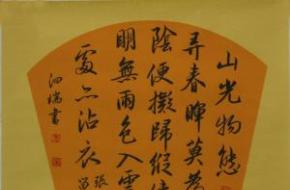 山光物態
弄春暉莫為
陰便擬歸縱使
明無雨色入雲
處亦沾衣 張
瑞書